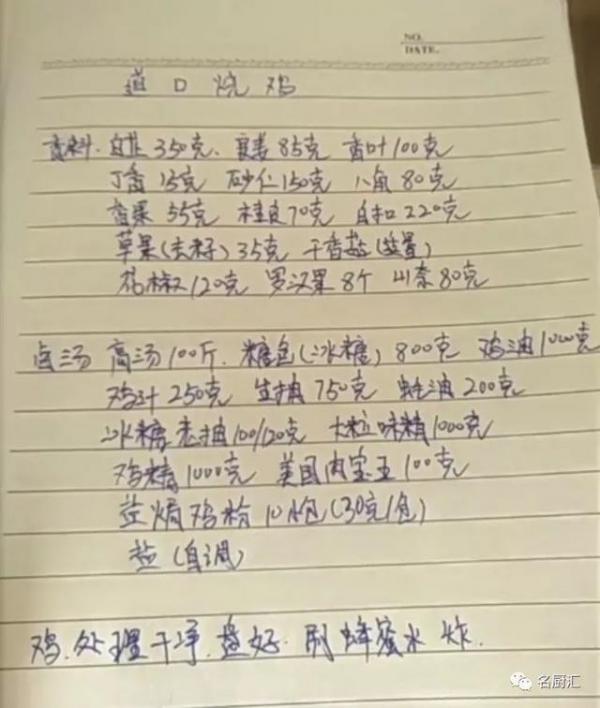 NO.
DATE.
道口烧鸡
香料. 白芷350克、良姜85克 香叶100克
丁香15克 砂仁150克 八角80克
草果55克 桂皮70克 白扣220克
草果(去籽)35克 干香菇(适量)
花椒120克 罗汉果8个 山奈80克
卤汤 高汤100斤. 糖色(冰糖)800克 鸡油1000克
鸡汁250克 生抽750克 蚝油200克
冰糖老抽100/120克 大粒味精1000克
鸡精1000克 美国肉宝王100克
盐焗鸡粉10小包(30克/包)
盐(自调)
鸡.处理干净.盘好.刷蜂蜜水 炸.
名厨汇